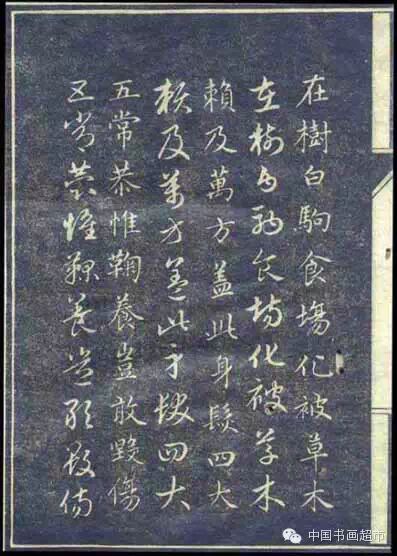 在樹白駒食場化被草木
在樹白駒食場化被草木
賴及萬方蓋此身髮四大
賴及萬方蓋此身髮四大
五常恭惟鞠養豈敢毀傷
五常恭惟鞠養豈敢毀傷
中国书画超市